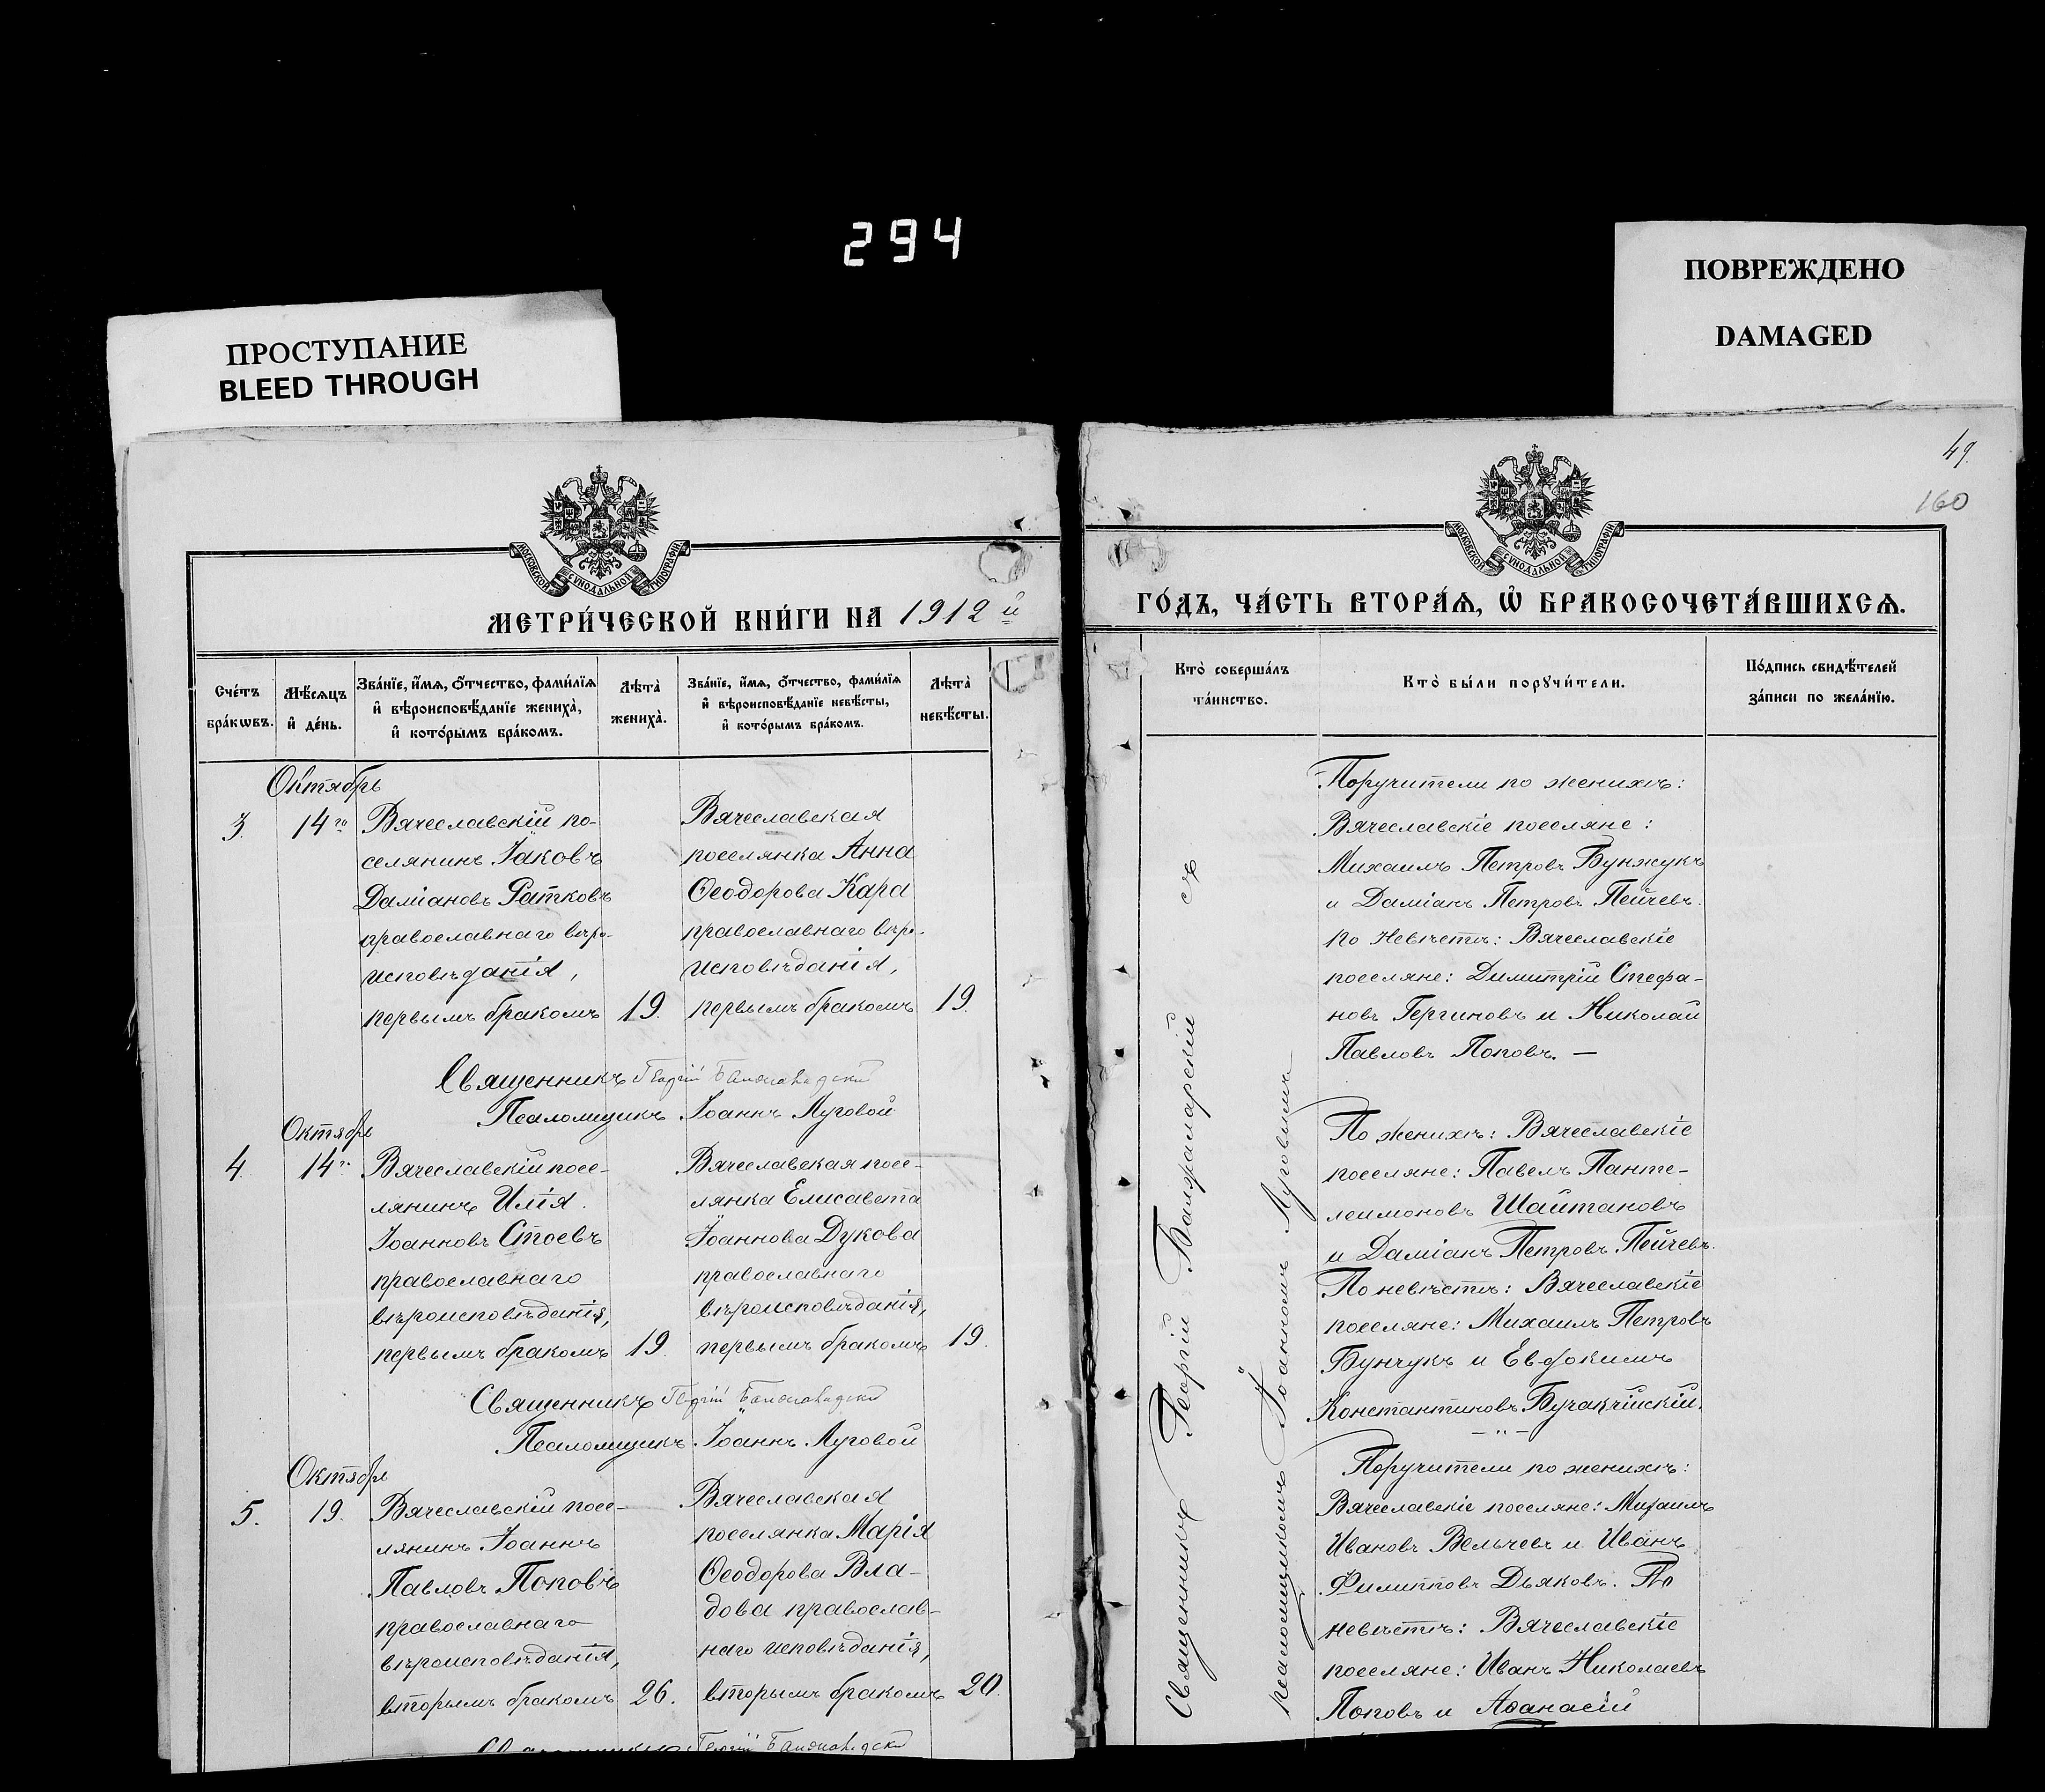 294
ПРОСТУПАНИЕ
BLEED THROUGH
ПОВРЕЖДЕНО
DAMAGED
МОСКОВСКОЙ СѴНОДАЛЬНОЙ ТИПОГРАФІИ
МЕТРИ́ЧЕСКОЙ КНИ́ГИ НА 1912 й
Сче́тъ
бра́кѡвъ.
Мѣ́сяцъ
и҆ де́нь.
Зва́нїе, и҆́мѧ, ѻ҆́тчество, фами́лїѧ
и҆ вѣроисповѣ́данїе жениха̀,
и҆ кото́рымъ бра́комъ.
Лѣта̀
жениха̀.
Зва́нїе, и҆́мѧ, ѻ҆́тчество, фами́лїѧ
и҆ вѣроисповѣ́данїе невѣ́сты,
и҆ кото́рымъ бра́комъ.
Лѣта̀
невѣ́сты.
Октябрь
3. 14го
Вячеславскій по-
селянинъ Іаковъ
Даміановъ Ратковъ
православнаго вѣро-
исповѣданія,
первымъ бракомъ 19.
Вячеславская
поселянка Анна
Ѳеодорова Кара
православнаго вѣро-
исповѣданія,
первымъ бракомъ 19.
Священникъ Георгій
Псаломщикъ Іоаннъ Луговой
Октябрь
4. 14го
Вячеславскій посе-
лянинъ Илія
Іоанновъ Стоевъ
православнаго
вѣроисповѣданія,
первымъ бракомъ 19
Вячеславская посе-
лянка Елисавета
Іоаннова Дукова
православнаго
вѣроисповѣданія,
первымъ бракомъ 19.
Священникъ Георгій
Псаломщикъ Іоаннъ Луговой
Октябрь
5. 19.
Вячеславскій посе-
лянинъ Іоаннъ
Павловъ Поповъ
православнаго
вѣроисповѣданія,
вторымъ бракомъ 26.
Вячеславская
поселянка Марія
Ѳеодорова Вла-
дова православ-
наго исповѣданія,
вторымъ бракомъ 20.
Священникъ Георгій
49.
160
МОСКОВСКОЙ СѴНОДАЛЬНОЙ ТИПОГРАФІИ
ГО́ДЪ, ЧА́СТЬ ВТОРА́Ѧ, Ѡ҆ БРАКОСОЧЕТА́ВШИХСѦ.
Кто̀ соверша́лъ
та́инство.
Кто̀ бы́ли порꙋчи́тели.
По́дпись свидѣ́телей
за́писи по жела́нїю.
Священникъ Георгій съ
псаломщикомъ Іоанномъ Луговымъ
Поручители по женихѣ:
Вячеславскіе поселяне:
Михаилъ Петровъ Бунжукъ
и Даміанъ Петровъ Пейчевъ.
По Невѣстѣ: Вячеславскіе
поселяне: Димитрій Стефа-
новъ Гергиновъ и Николай
Павловъ Поповъ. —
По женихѣ: Вячеславскіе
поселяне: Павелъ Панте-
леимоновъ Шайтановъ
и Даміанъ Петровъ Пейчевъ.
По невѣстѣ: Вячеславскіе
поселяне: Михаилъ Петровъ
Бунчукъ и Евдокимъ
Константиновъ Бучакчійскій.
—"—
Поручители по женихѣ:
Вячеславскіе поселяне: Михаилъ
Ивановъ Вельчевъ и Иванъ
Филипповъ Дьяковъ. По
невѣстѣ: Вячеславскіе
поселяне: Иванъ Николаевъ
Поповъ и Аѳанасій